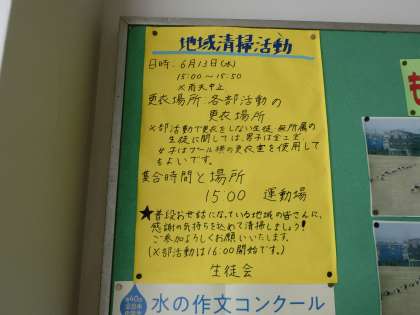 地域清掃活動
日時:6月13日(水)
15:00～15:50
※雨天中止
更衣場所:各部活動の
更衣場所
※部活動で更衣をしない生徒・無所属の
生徒に関しては、男子は金工室、
女子はプール横の更衣室を使用して
もよいです。
集合時間と場所
15:00 運動場
★普段お世話になっている地域の皆さんに、
感謝の気持ちを込めて清掃しましょう!
ご参加よろしくお願いいたします。
(※部活動は16:00開始です。)
生徒会
第40回
水の作文コンクール
も